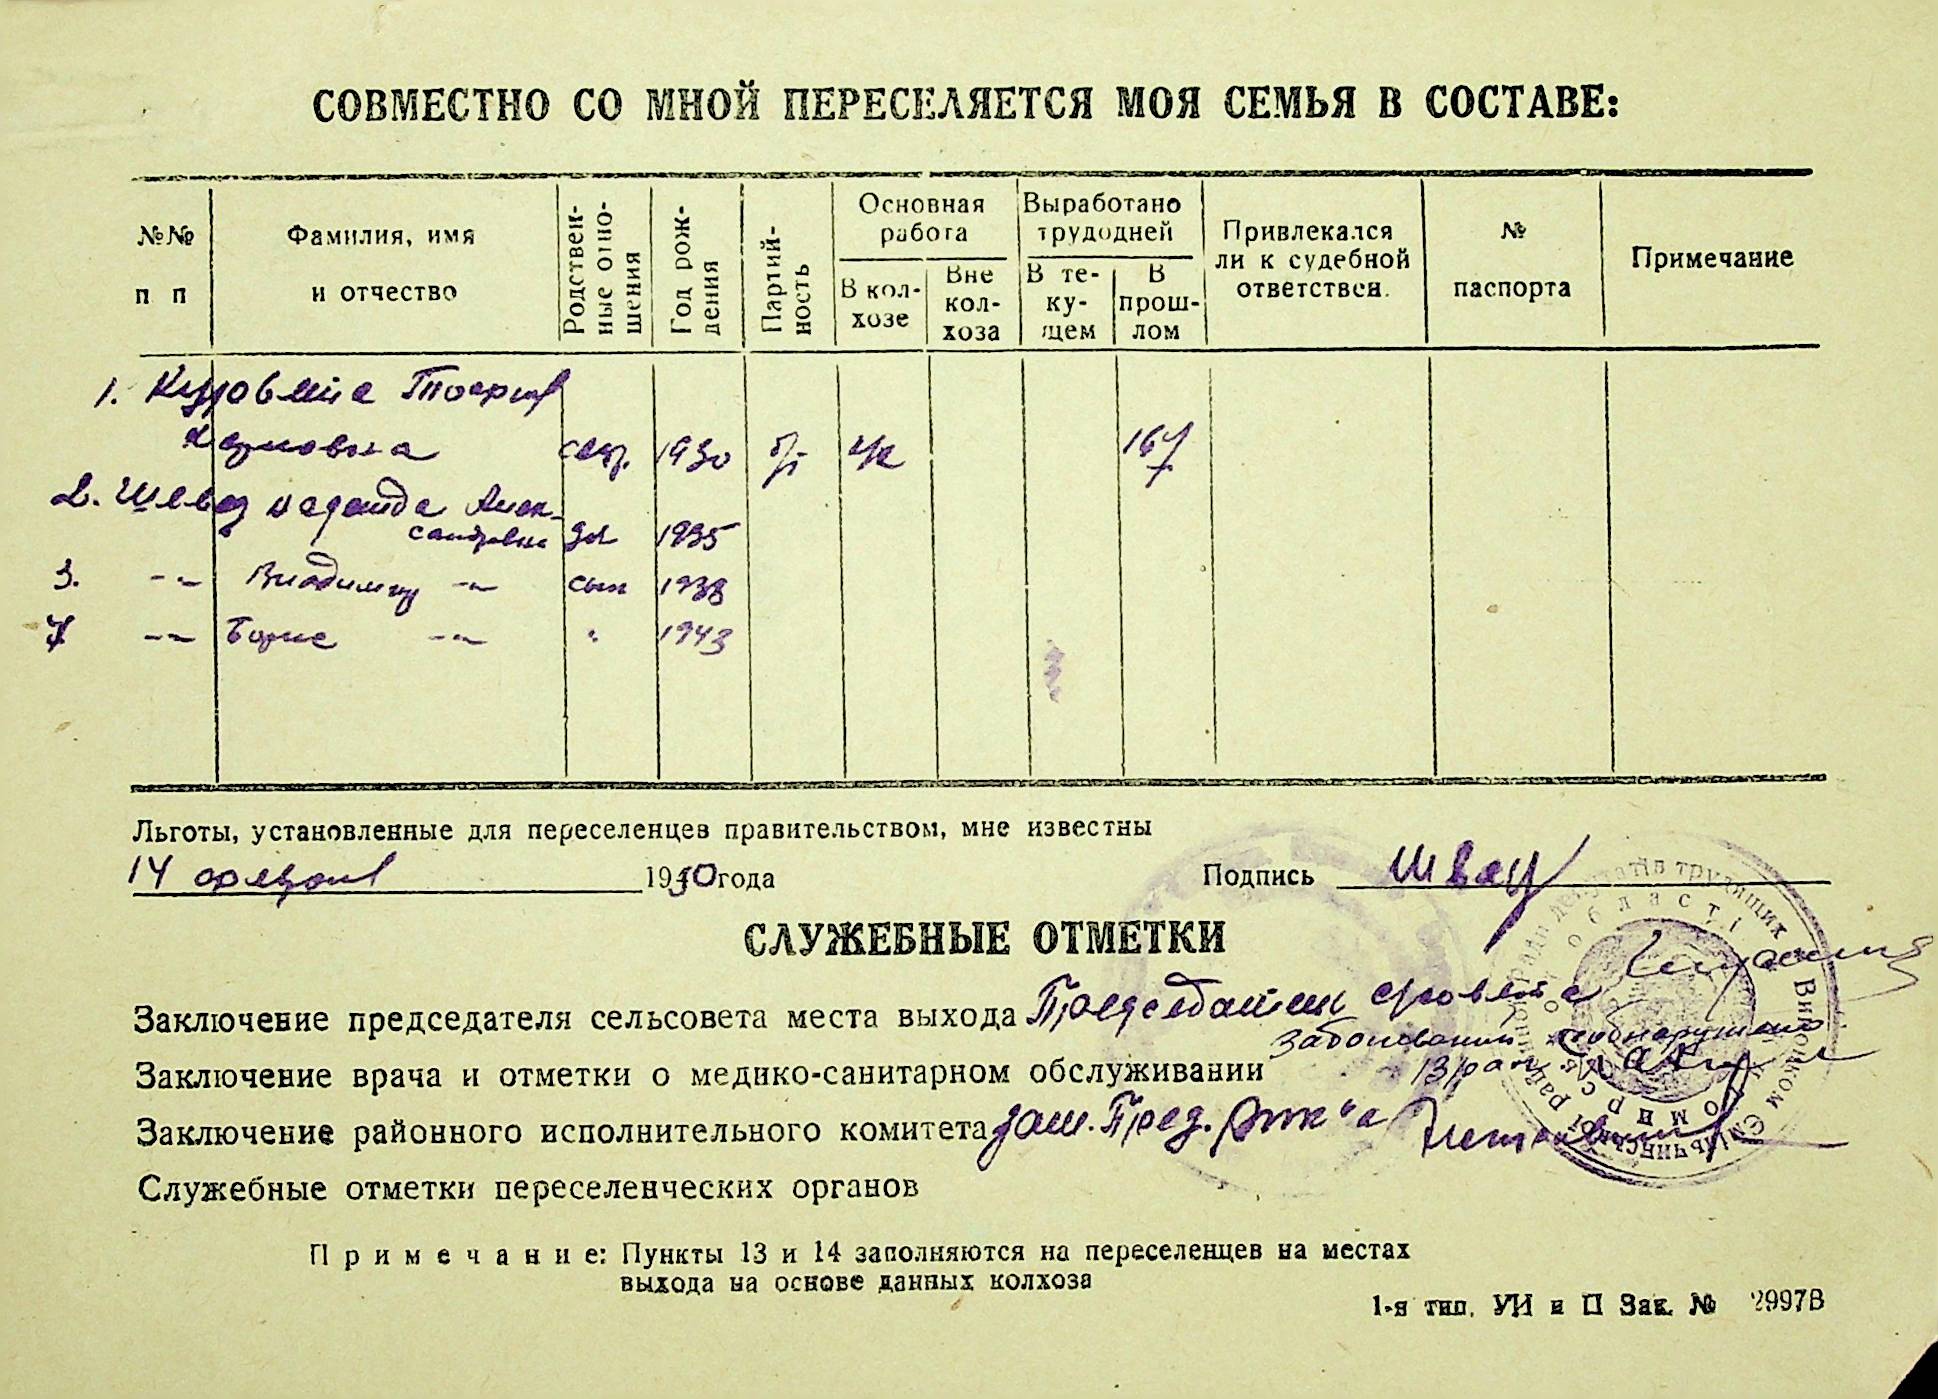 СОВМЕСТНО СО МНОЙ ПЕРЕСЕЛЯЕТСЯ МОЯ СЕМЬЯ В СОСТАВЕ:
№№ п п
Фамилия, имя и отчество
Родственные отношения
Год рождения
Партийность
Основная работа
В колхозе
Вне колхоза
Выработано трудодней
В текущем
В прошлом
Привлекался ли к судебной ответствен.
№ паспорта
Примечание
1.
сестр. 1930 б/п ч/к 167
2. Швец Надежда Алек-
сандровна дч 1935
3. -"- Владимир -"- сын 1938
4 -"- Борис -"- " 1943
Льготы, установленные для переселенцев правительством, мне известны
14 февраля 1950 года
Подпись Швец
СЛУЖЕБНЫЕ ОТМЕТКИ
Заключение председателя сельсовета места выхода Председатель с/совета
Заключение врача и отметки о медико-санитарном обслуживании Заболеваний не обнаружено
Врач
Заключение районного исполнительного комитета зам. Пред. рик"а
Служебные отметки переселенческих органов
Примечание: Пункты 13 и 14 заполняются на переселенцев на местах
выхода на основе данных колхоза
1-я тип. УИ и П Зак. № 29978